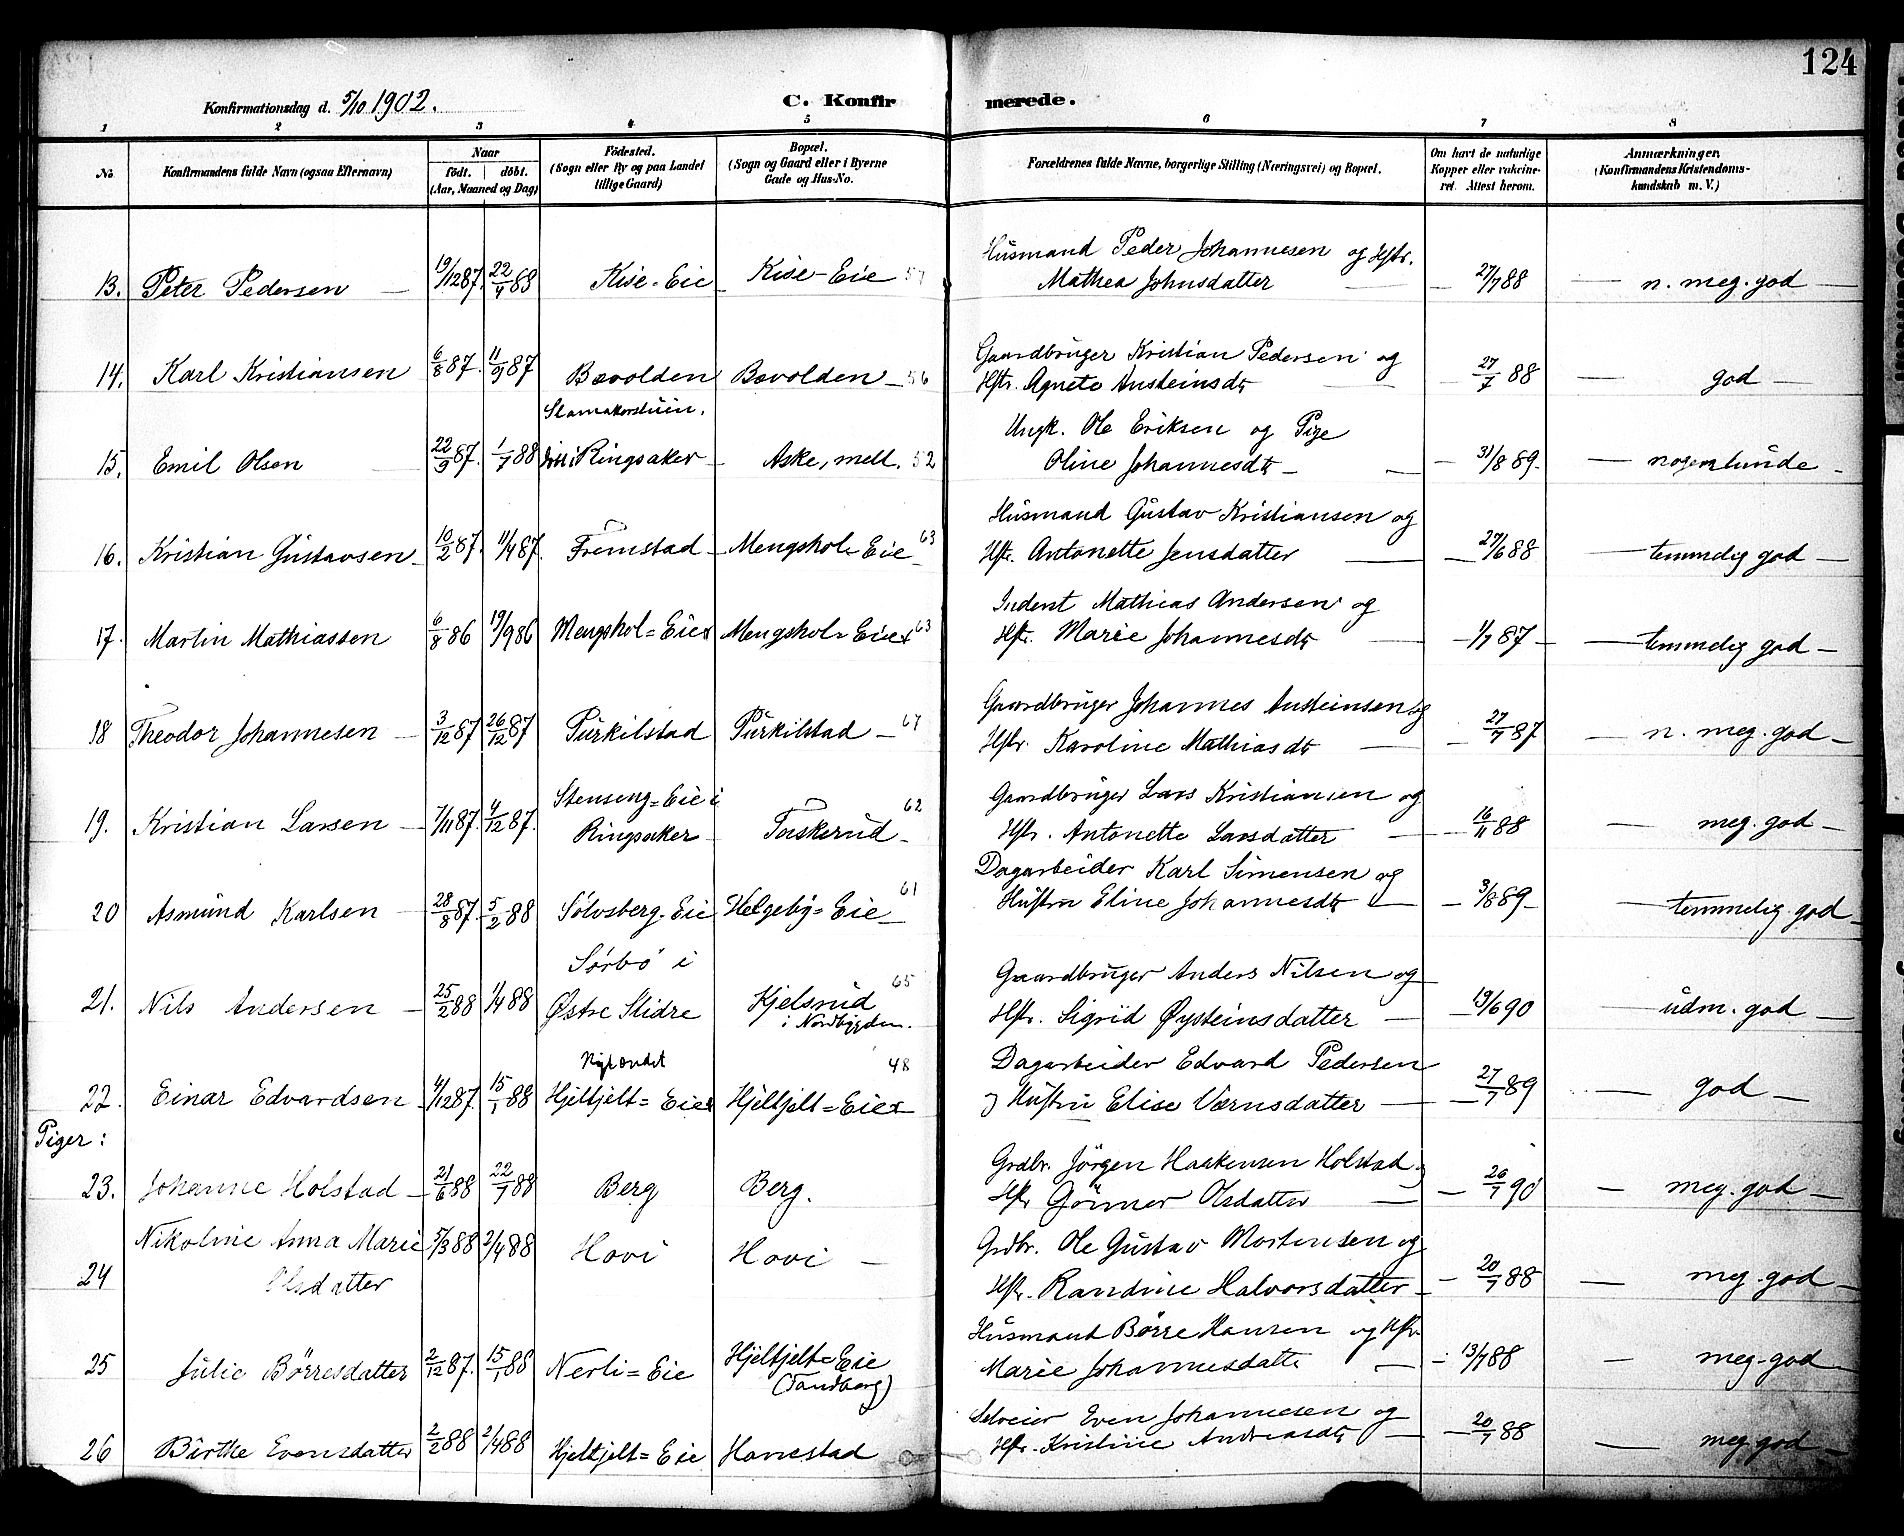 124
Konfirmationsdag d. 5/10 1902.
C. Konfirmerede.
1 2 3 4 5 6 7 8
No Konfirmandens fulde Navn (ogsaa Efternavn) Naar født. døbt. (Aar, Maaned og Dag) Fødested. (Sogn eller By og paa Landet tillige Gaard) Bopæl. (Sogn og Gaard eller i Byerne Gade og Hus-No. Forældrenes fulde Navne, borgerlige Stilling (Næringsvei) og Bopæl. Om havt de naturlige Kopper eller vakcineret. Attest herom. Anmærkninger. (Konfirmandens Kristendomskundskab m. V.)
Husmand Peder Johannesen og Hstr.
13. Peter Pedersen 19/12 87. 22/4 88 Kise-Eie Kise-Eie 57 Mathea Johnsdatter 27/7 88 n. meg. god
Gaardbruger Kristian Pedersen og
14. Karl Kristiansen 6/8 87. 11/9 87 Bævolden Bævolden 56 Hstr. Agnete Austeinsdtr 27/7 88 god
Ungk. Ole Eriksen og Pige
15. Emil Olsen 22/9 87. 1/7 88 Ringsaker Aske, mell. 52 Oline Johannesdtr 31/8 89. nogenlunde
Husmand Gustav Kristiansen og
16. Kristian Gustavsen 10/2 87. 11/4 87. Fremstad Mengshol-Eie 63 Hstr. Antonette Jensdatter 27/6 88 temmelig god
Inderst Mathias Andersen og
17. Martin Mathiassen 6/8 86 19/9 86 Mengshol=Eie Mengshol=Eie 63 Hstr. Marie Johannesdtr 1/7 87 temmelig god
Gaardbruger Johannes Austeinsen og
18 Theodor Johannesen 3/12 87 26/12 87 Purkilstad Purkilstad 67 Hstr. Karoline Mathiasdtr 27/7 87 n. meg. god
Stenseng=Eie i Gaardbruger Lars Kristiansen og
19. Kristian Larsen 7/11 87. 4/12 87. Ringsaker Taskerud 62 Hstr. Antonette Larsdatter 16/11 88 meg. god
Dagarbeider Karl Simensen og
20 Asmund Karlsen 28/8 87. 5/2 88 Sølvsberg-Eie Helgeby=Eie 61 Hustru Eline Johannesdtr 3/8 89 temmelig god
Sørbø i Gaardbruger Anders Nilsen og
21. Nils Andersen 25/2 88 1/4 88 Østre Slidre Kjelsrud i Nordbygden. 65 Hstr. Sigrid Øysteinsdatter 19/6 90 udm. god
Nylændet Dagarbeider Edvard Pedersen
22. Einar Edvardsen 4/12 87. 15/1 88 Hjeltjelt=Eie Hjeltjelt=Eie 48 og Hustru Elise Værnsdatter 27/7 89 god
Piger:
Grdbr. Jörgen Haakensen Holstad og
23. Johanne Holstad 21/6 88 22/7 88 Berg Berg. Hstr Gönner Olsdatter 26/7 90 meg. god
Nikoline Anna Marie 5/3 88 2/4 88 Hovi Hovi Grdbr. Ole Gustav Mortensen og
24 Olsdatter Hstr. Randine Halvorsdatter 20/7 88 meg. god
Husmand Börre Hansen og Hstr.
25 Julie Börresdatter 2/12 87. 15/1 88 Nerli=Eie Hjeltjelt=Eie (Sandberg) Marie Johannesdatter 13/7 88 meg. god
Selveier Even Johannesen og
26 Birthe Evensdatter 2/2 88 2/4 88 Hjeltjelt=Eie Hanestad Hstr. Kristine Andreasdtr 20/7 88 meg. god